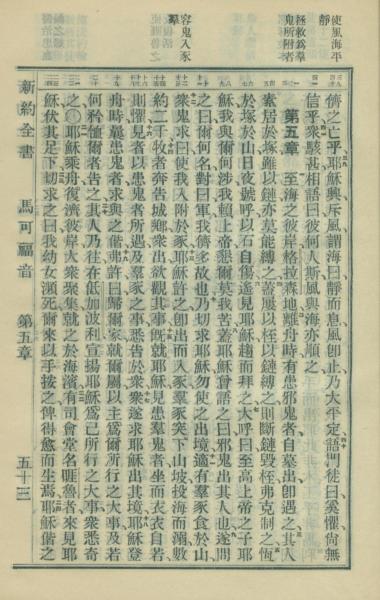 使風海平
靜
拯救為羣
鬼所附者
容鬼入豕
羣
儕之亡乎耶穌興斥風謂海曰靜而息風卽止乃大平定語門徒曰奚懼尙無
信乎衆駭甚相語曰彼何人斯風與海亦順之
第五章 至海之彼岸格拉森地離舟時有患邪鬼者自墓出卽遇之其人
素居於塚雖以鏈亦莫能縛之蓋屢以桎以鏈縛之則斷鏈毀桎弗克制之恆
於塚於山日夜號呼以石自傷遙見耶穌趨而拜之大呼曰至高上帝之子耶
穌我與爾何涉我賴上帝懇爾莫我苦蓋耶穌曾語之曰邪鬼出其人也遂問
之曰爾何名對曰軍我儕多故也乃切求耶穌勿使之出境適有羣豕食於山
衆鬼求曰使我入附於豕耶穌許之卽出而入豕羣豕突下山坡投海而溺數
約二千牧者奔告城鄕衆出欲觀其事旣就耶穌見患羣鬼者坐而衣衣自若
則懼見者以患鬼者所遇及羣豕之事悉告於衆衆遂求耶穌出其境耶穌登
舟時曩患鬼者求與之偕弗許曰歸爾家就爾屬以主爲爾所行之大事及若
何矜恤爾者告之其人乃往在低加波利宣揚耶穌爲己所行之大事衆悉奇
之 耶穌乘舟復濟彼岸大衆聚集就之於海濱有司會堂名睚魯者來見耶
穌伏其足下切求之曰我幼女瀕死爾來以手按之俾得愈而生焉耶穌偕之
新約全書 馬可福音 第五章 五十三